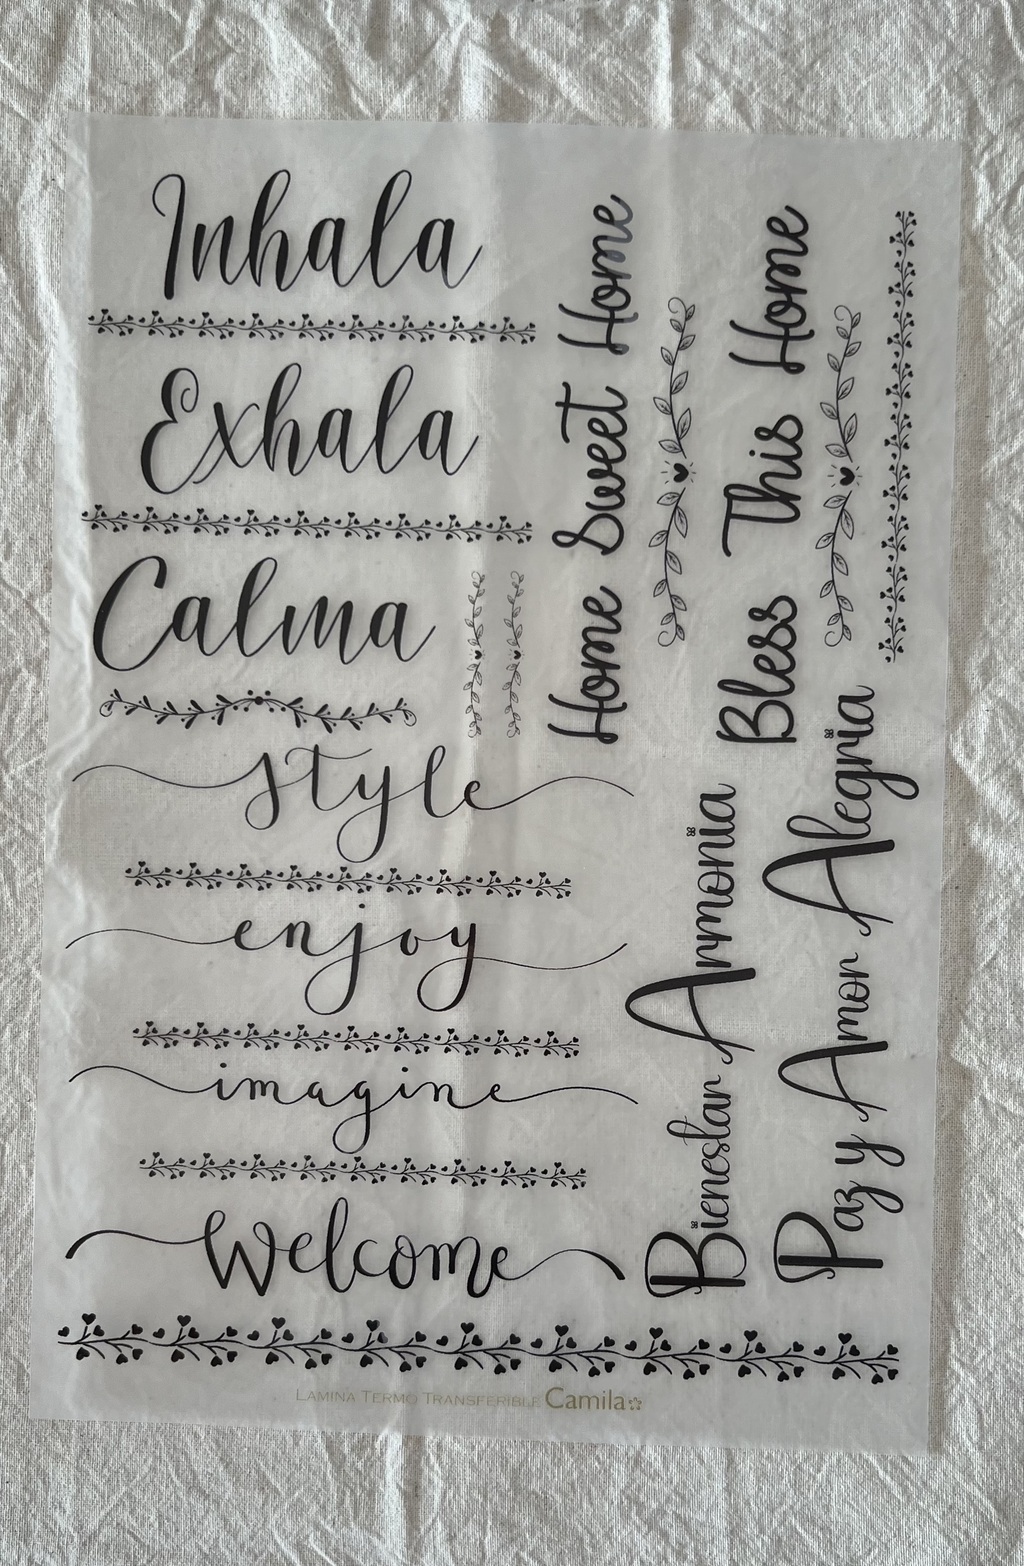 Inhala
Exhala
Calma
style
enjoy
imagine
Welcome
Home Sweet Home
Bless This Home
Bienestar Armonia
Paz y Amor Alegria
LAMINA TERMO TRANSFERIBLE Camila